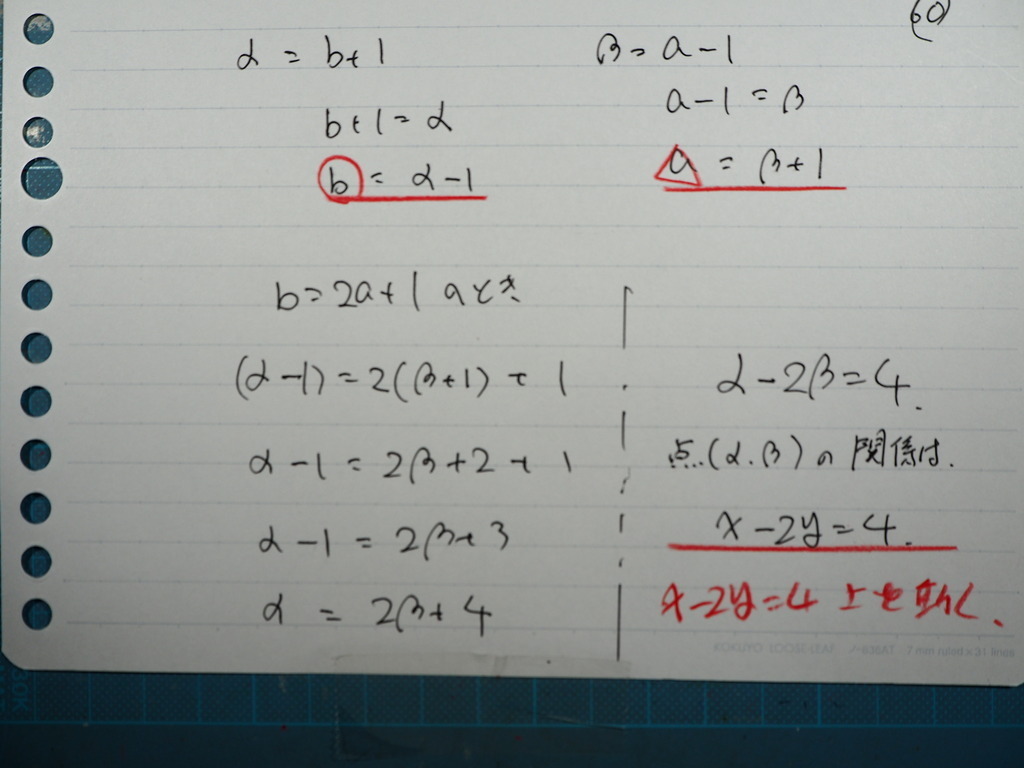 (60)
α = b+1
b+1 = α
b = α-1
β = a-1
a-1 = β
a = β+1
b=2a+1 aとき
(α-1)=2(β+1)+1
α-1=2β+2+1
α-1=2β+3
α=2β+4
α-2β=4.
点(α.β)の関係は.
x-2y=4.
x-2y=4上を動く.
KOKUYO LOOSE-LEAF ノ-836AT 7 mm ruled×31 lines